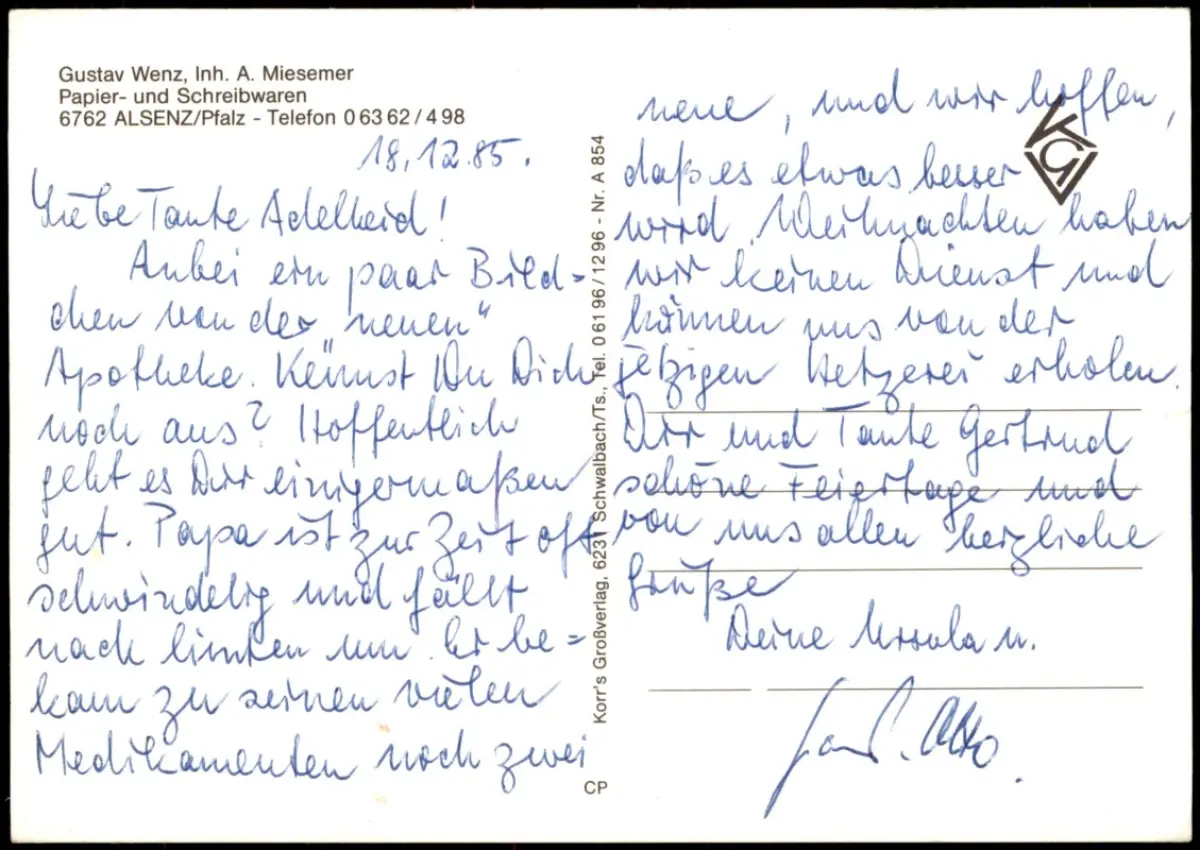 Gustav Wenz, Inh. A. Miesemer
Papier- und Schreibwaren
6762 ALSENZ/Pfalz - Telefon 0 63 62 / 4 98
18.12.85.
Liebe Tante Adelheid!
Anbei ein paar Bild-
chen von der „neuen“
Apotheke. Kennst Du Dich
noch aus? Hoffentlich
geht es Dir einigermaßen
gut. Papa ist zur Zeit oft
schwindelig und fällt
nach hinten um. Er be-
kam zu seinen vielen
Medikamenten noch zwei
Korr's Großverlag, 6231 Schwalbach/Ts., Tel. 0 61 96 / 12 96 - Nr. A 854
CP
KGV
neue, und wir hoffen,
daß es etwas besser
wird. Weihnachten haben
wir keinen Dienst und
können uns von der
jetzigen Hetzerei erholen.
Dir und Tante Gertrud
schöne Feiertage und
von uns allen herzliche
Grüße
Deine Ursula u.
Otto